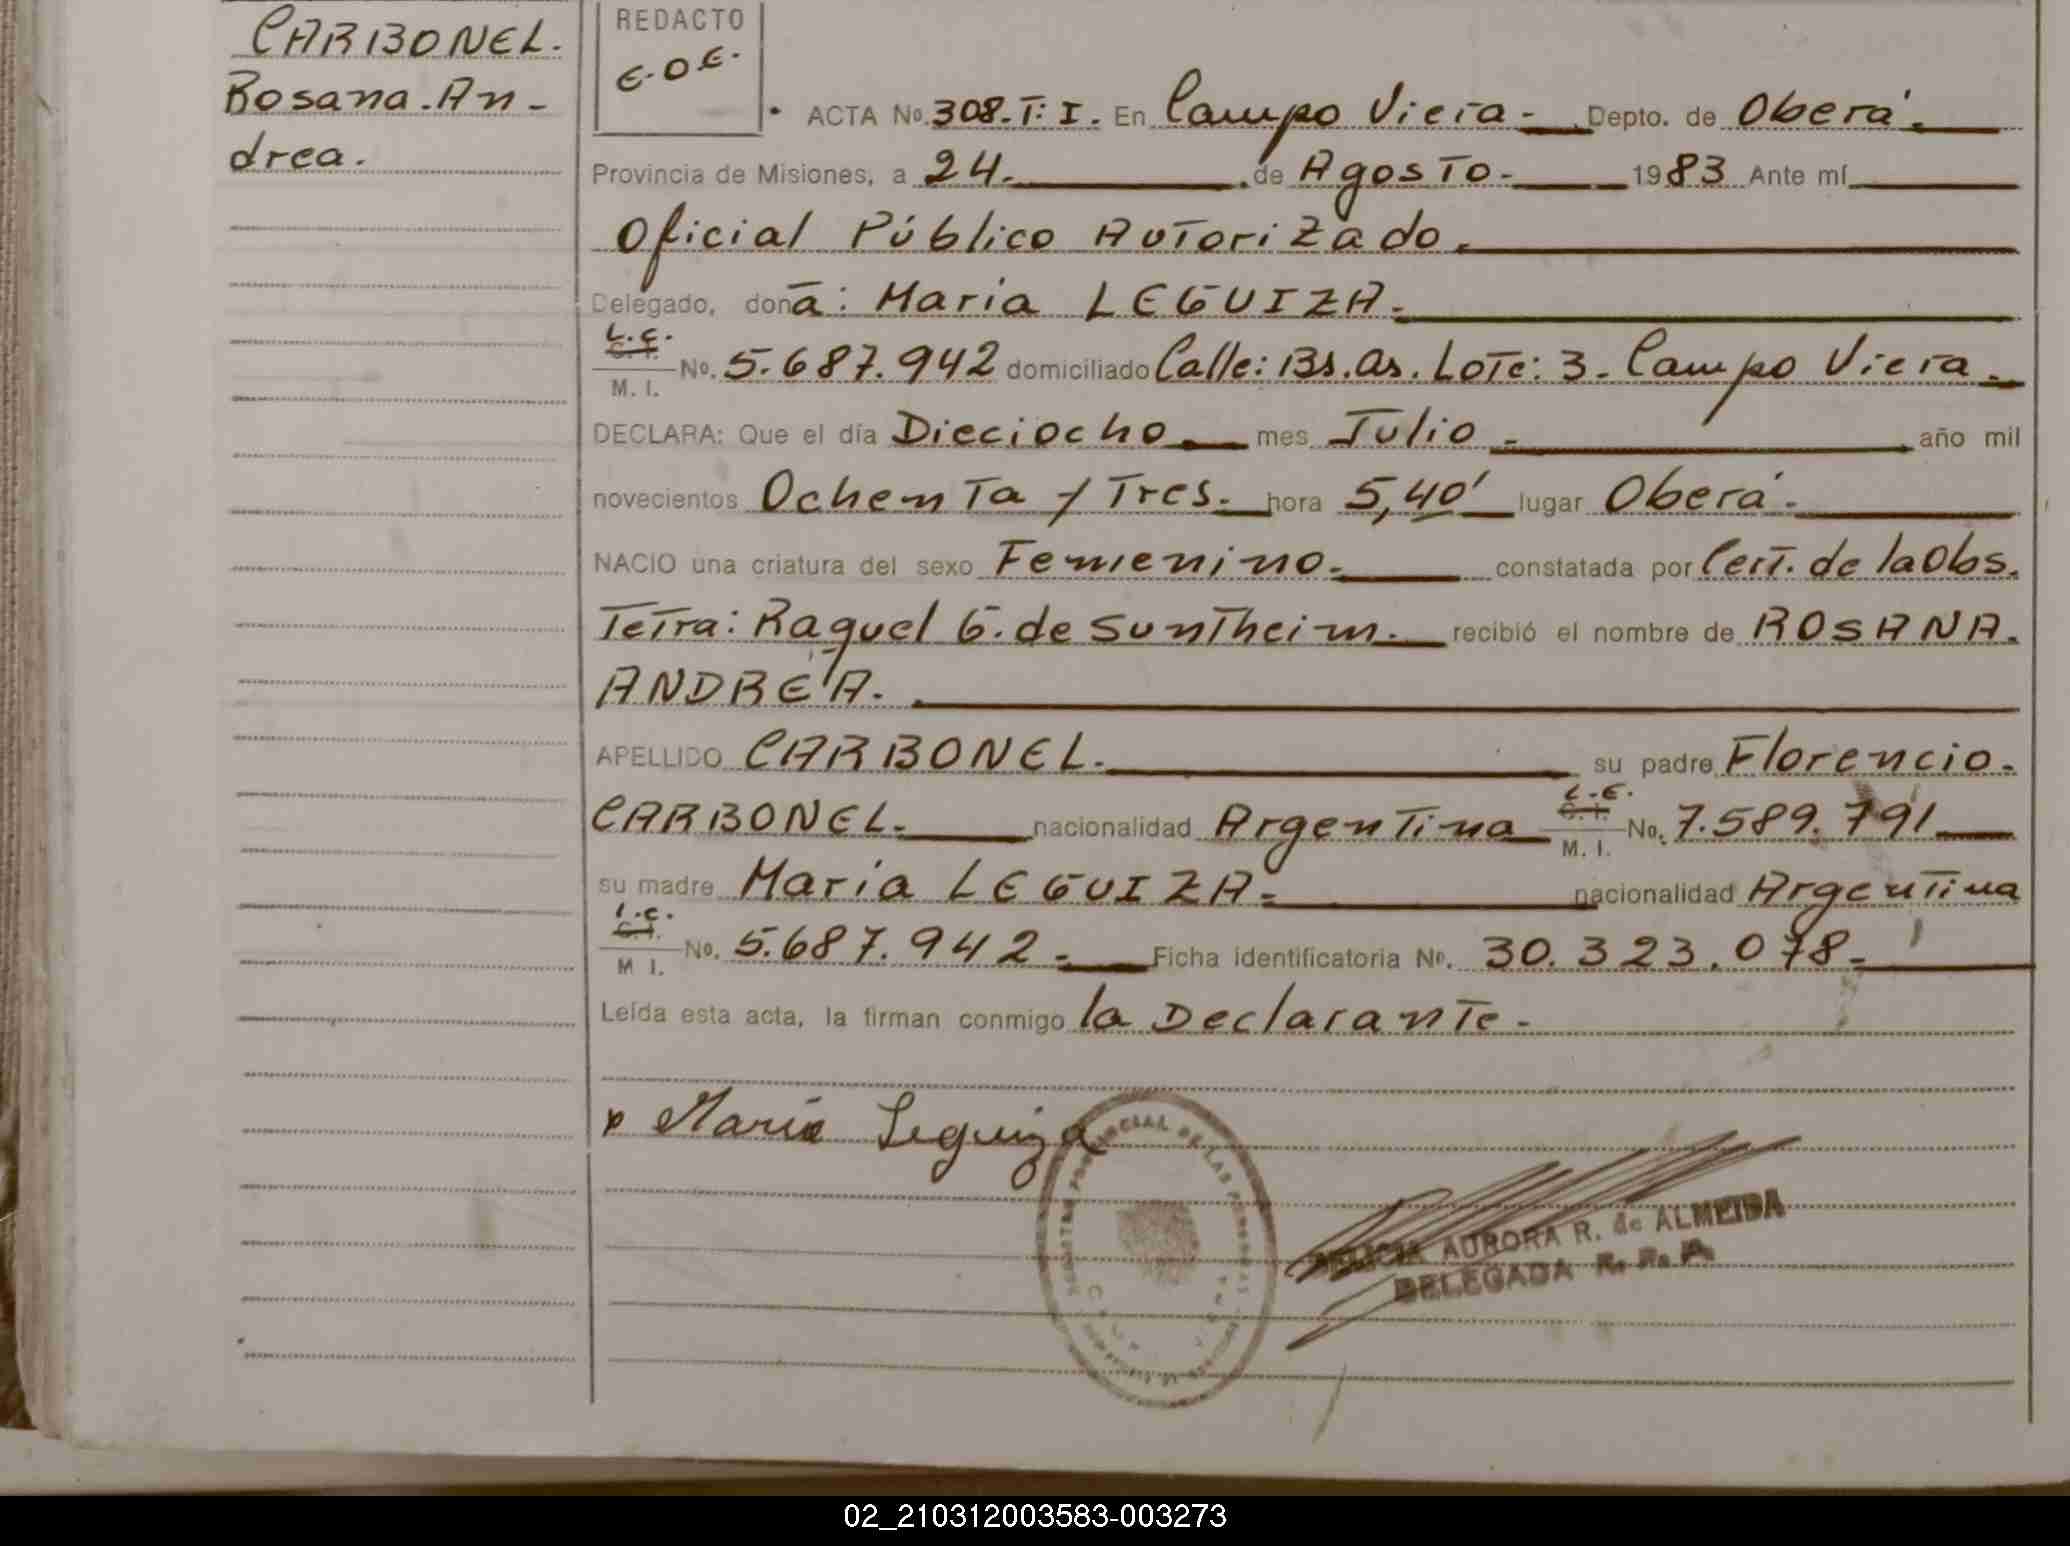 CARBONEL.
Rosana.An-
drea.
REDACTO
E.O.E.
ACTA No. 308.T:I. En Campo Viera- Depto. de Oberá.
Provincia de Misiones, a 24. de Agosto- 1983 Ante mí
Oficial Público Autorizado.
Delegado, donã: Maria LEGUIZA.
L.C.
C.I.
M. I.
No. 5.687.942 domiciliado Calle: Bs.As. Lote: 3. Campo Viera.
DECLARA: Que el día Dieciocho mes Julio - año mil
novecientos Ochenta y Tres. hora 5,40' lugar Oberá.
NACIO una criatura del sexo Femenino. constatada por Cert. de la Obs.
Tetra: Raquel G. de Suntheim. recibió el nombre de ROSANA.
ANDREA.
APELLIDO CARBONEL. su padre Florencio.
CARBONEL. nacionalidad Argentina
L.E.
C.I.
M. I.
No. 7.589.791
su madre Maria LEGUIZA. nacionalidad Argentina
L.C.
C.I.
M I.
No. 5.687.942. Ficha identificatoria No. 30.323.078.
Leída esta acta, la firman conmigo la Declarante.
Maria Leguiza
PROVINCIAL DE LAS PERSONAS
FELICIA AURORA R. de ALMEIDA
DELEGADA R. P. A
02_210312003583-003273